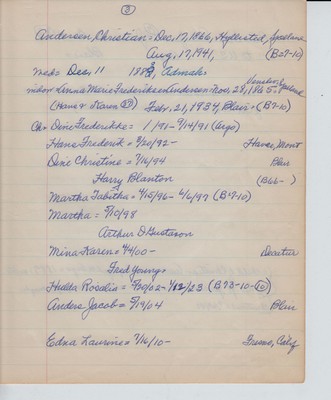 ③
Andersen, Christian = Dec, 17, 1866, Hyllested, Sjaelland
Aug, 17, 1941, (B27-10)
med = Dec, 11 1889, Admah
Lenna Marie Frederiksen Andersen = Nov, 28, 1865
(Hans & Karen) Feb, 21, 1934, Blair = (B7-10)
Ch = Dine Frederikke = 1/91 - 9/14/91 (Argo)
Hans Frederik = 8/20/92 - Havre, Mont
Dine Christine = 7/16/94 Blair
Harry Blanton (B66- )
Martha Tabitha = 4/15/96 - 6/6/97 (B27-10)
Martha = 5/10/98
Arthur D Gustason
Mina Karen = 4/4/00 - Decatur
Fred Young =
Hulda Rosalia = 8/30/02 - 1/12/23 (B73-10-10)
Anders Jacob = 5/19/04 Blair
Edna Laurine = 7/16/10 - Fresno, Calif